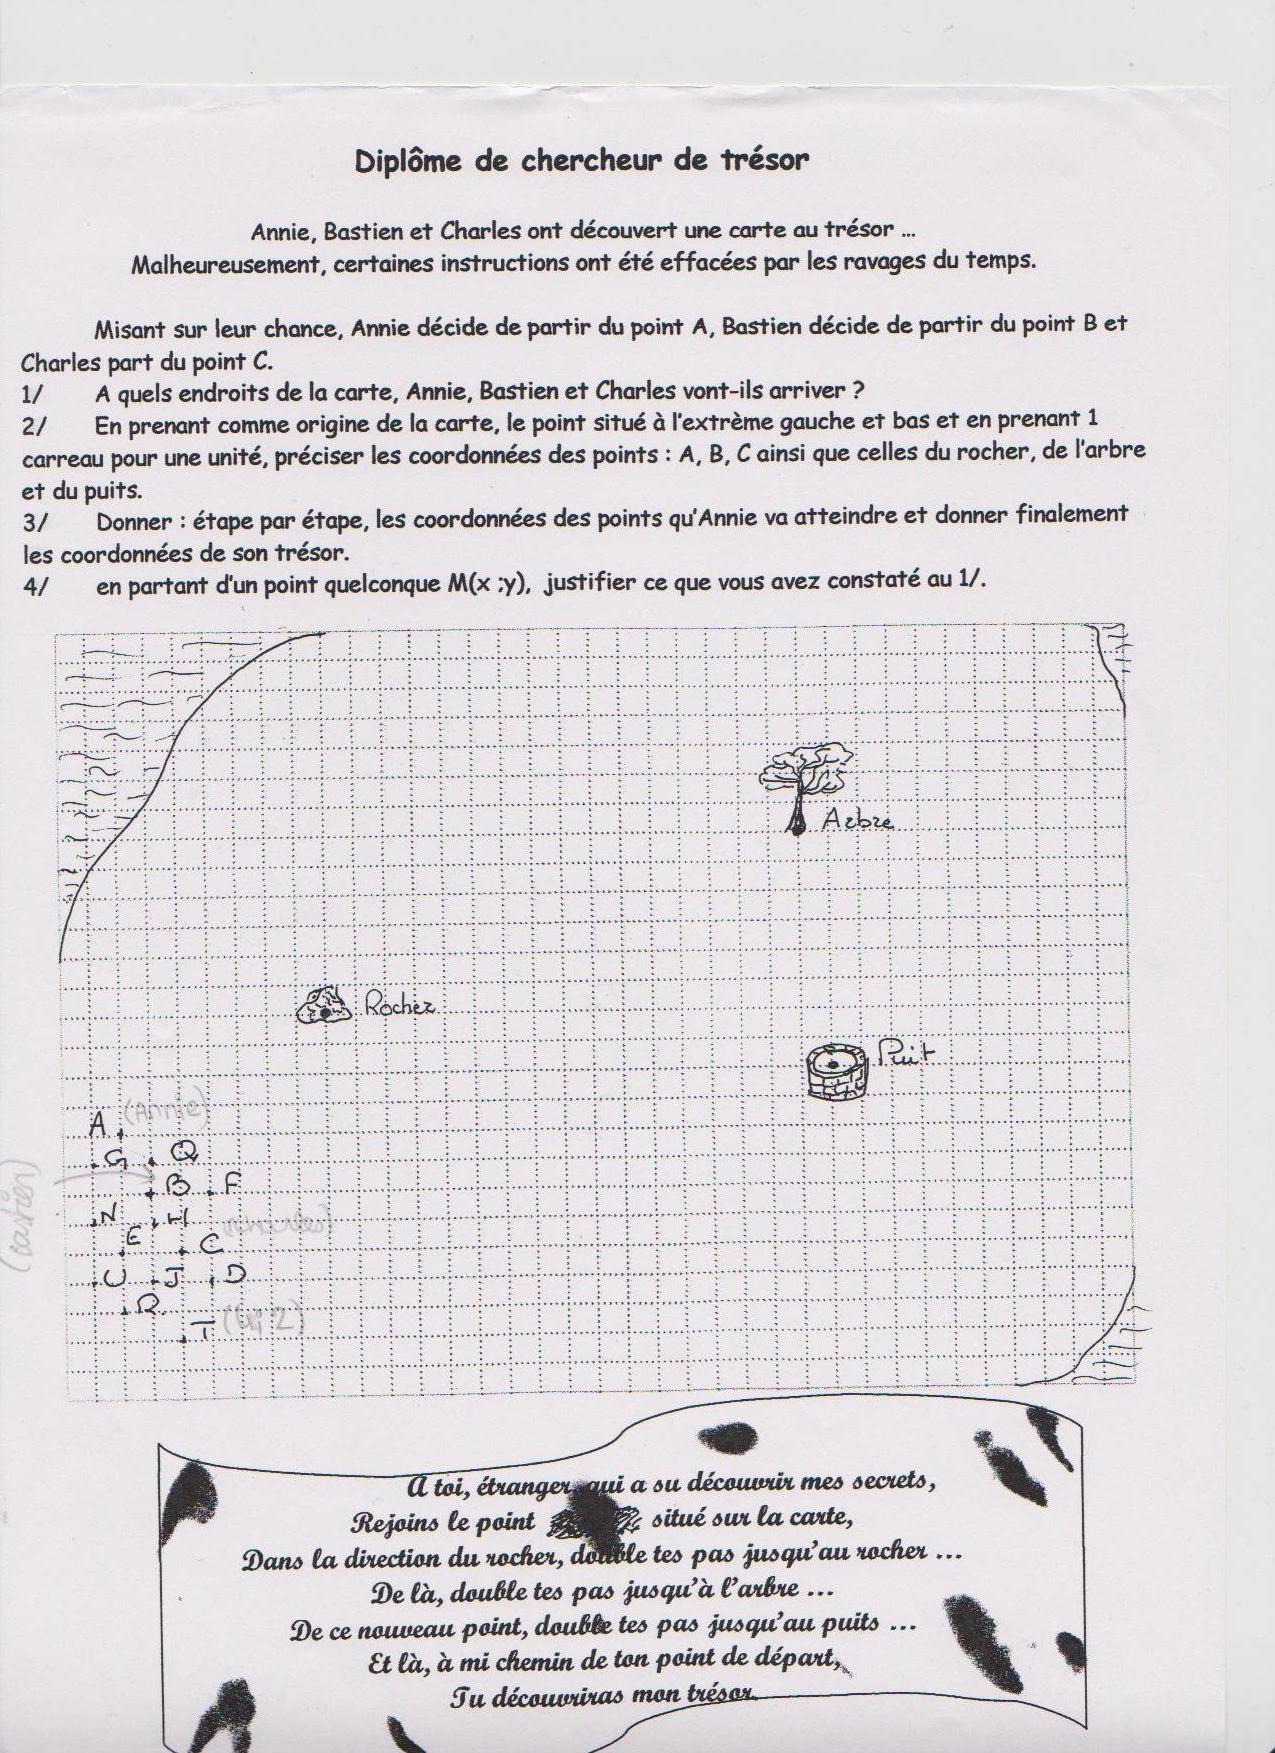 Diplôme de chercheur de trésor
Annie, Bastien et Charles ont découvert une carte au trésor ...
Malheureusement, certaines instructions ont été effacées par les ravages du temps.
Misant sur leur chance, Annie décide de partir du point A, Bastien décide de partir du point B et
Charles part du point C.
1/ A quels endroits de la carte, Annie, Bastien et Charles vont-ils arriver ?
2/ En prenant comme origine de la carte, le point situé à l'extrème gauche et bas et en prenant 1
carreau pour une unité, préciser les coordonnées des points : A, B, C ainsi que celles du rocher, de l'arbre
et du puits.
3/ Donner : étape par étape, les coordonnées des points qu'Annie va atteindre et donner finalement
les coordonnées de son trésor.
4/ en partant d'un point quelconque M(x ;y), justifier ce que vous avez constaté au 1/.
Arbre
Rocher
Puit
A (Annie)
G Q
B F
N H
E C
U J D
R
T
A toi, étranger, qui a su découvrir mes secrets,
Rejoins le point situé sur la carte,
Dans la direction du rocher, double tes pas jusqu'au rocher ...
De là, double tes pas jusqu'à l'arbre ...
De ce nouveau point, double tes pas jusqu'au puits ...
Et là, à mi chemin de ton point de départ,
Tu découvriras mon trésor.